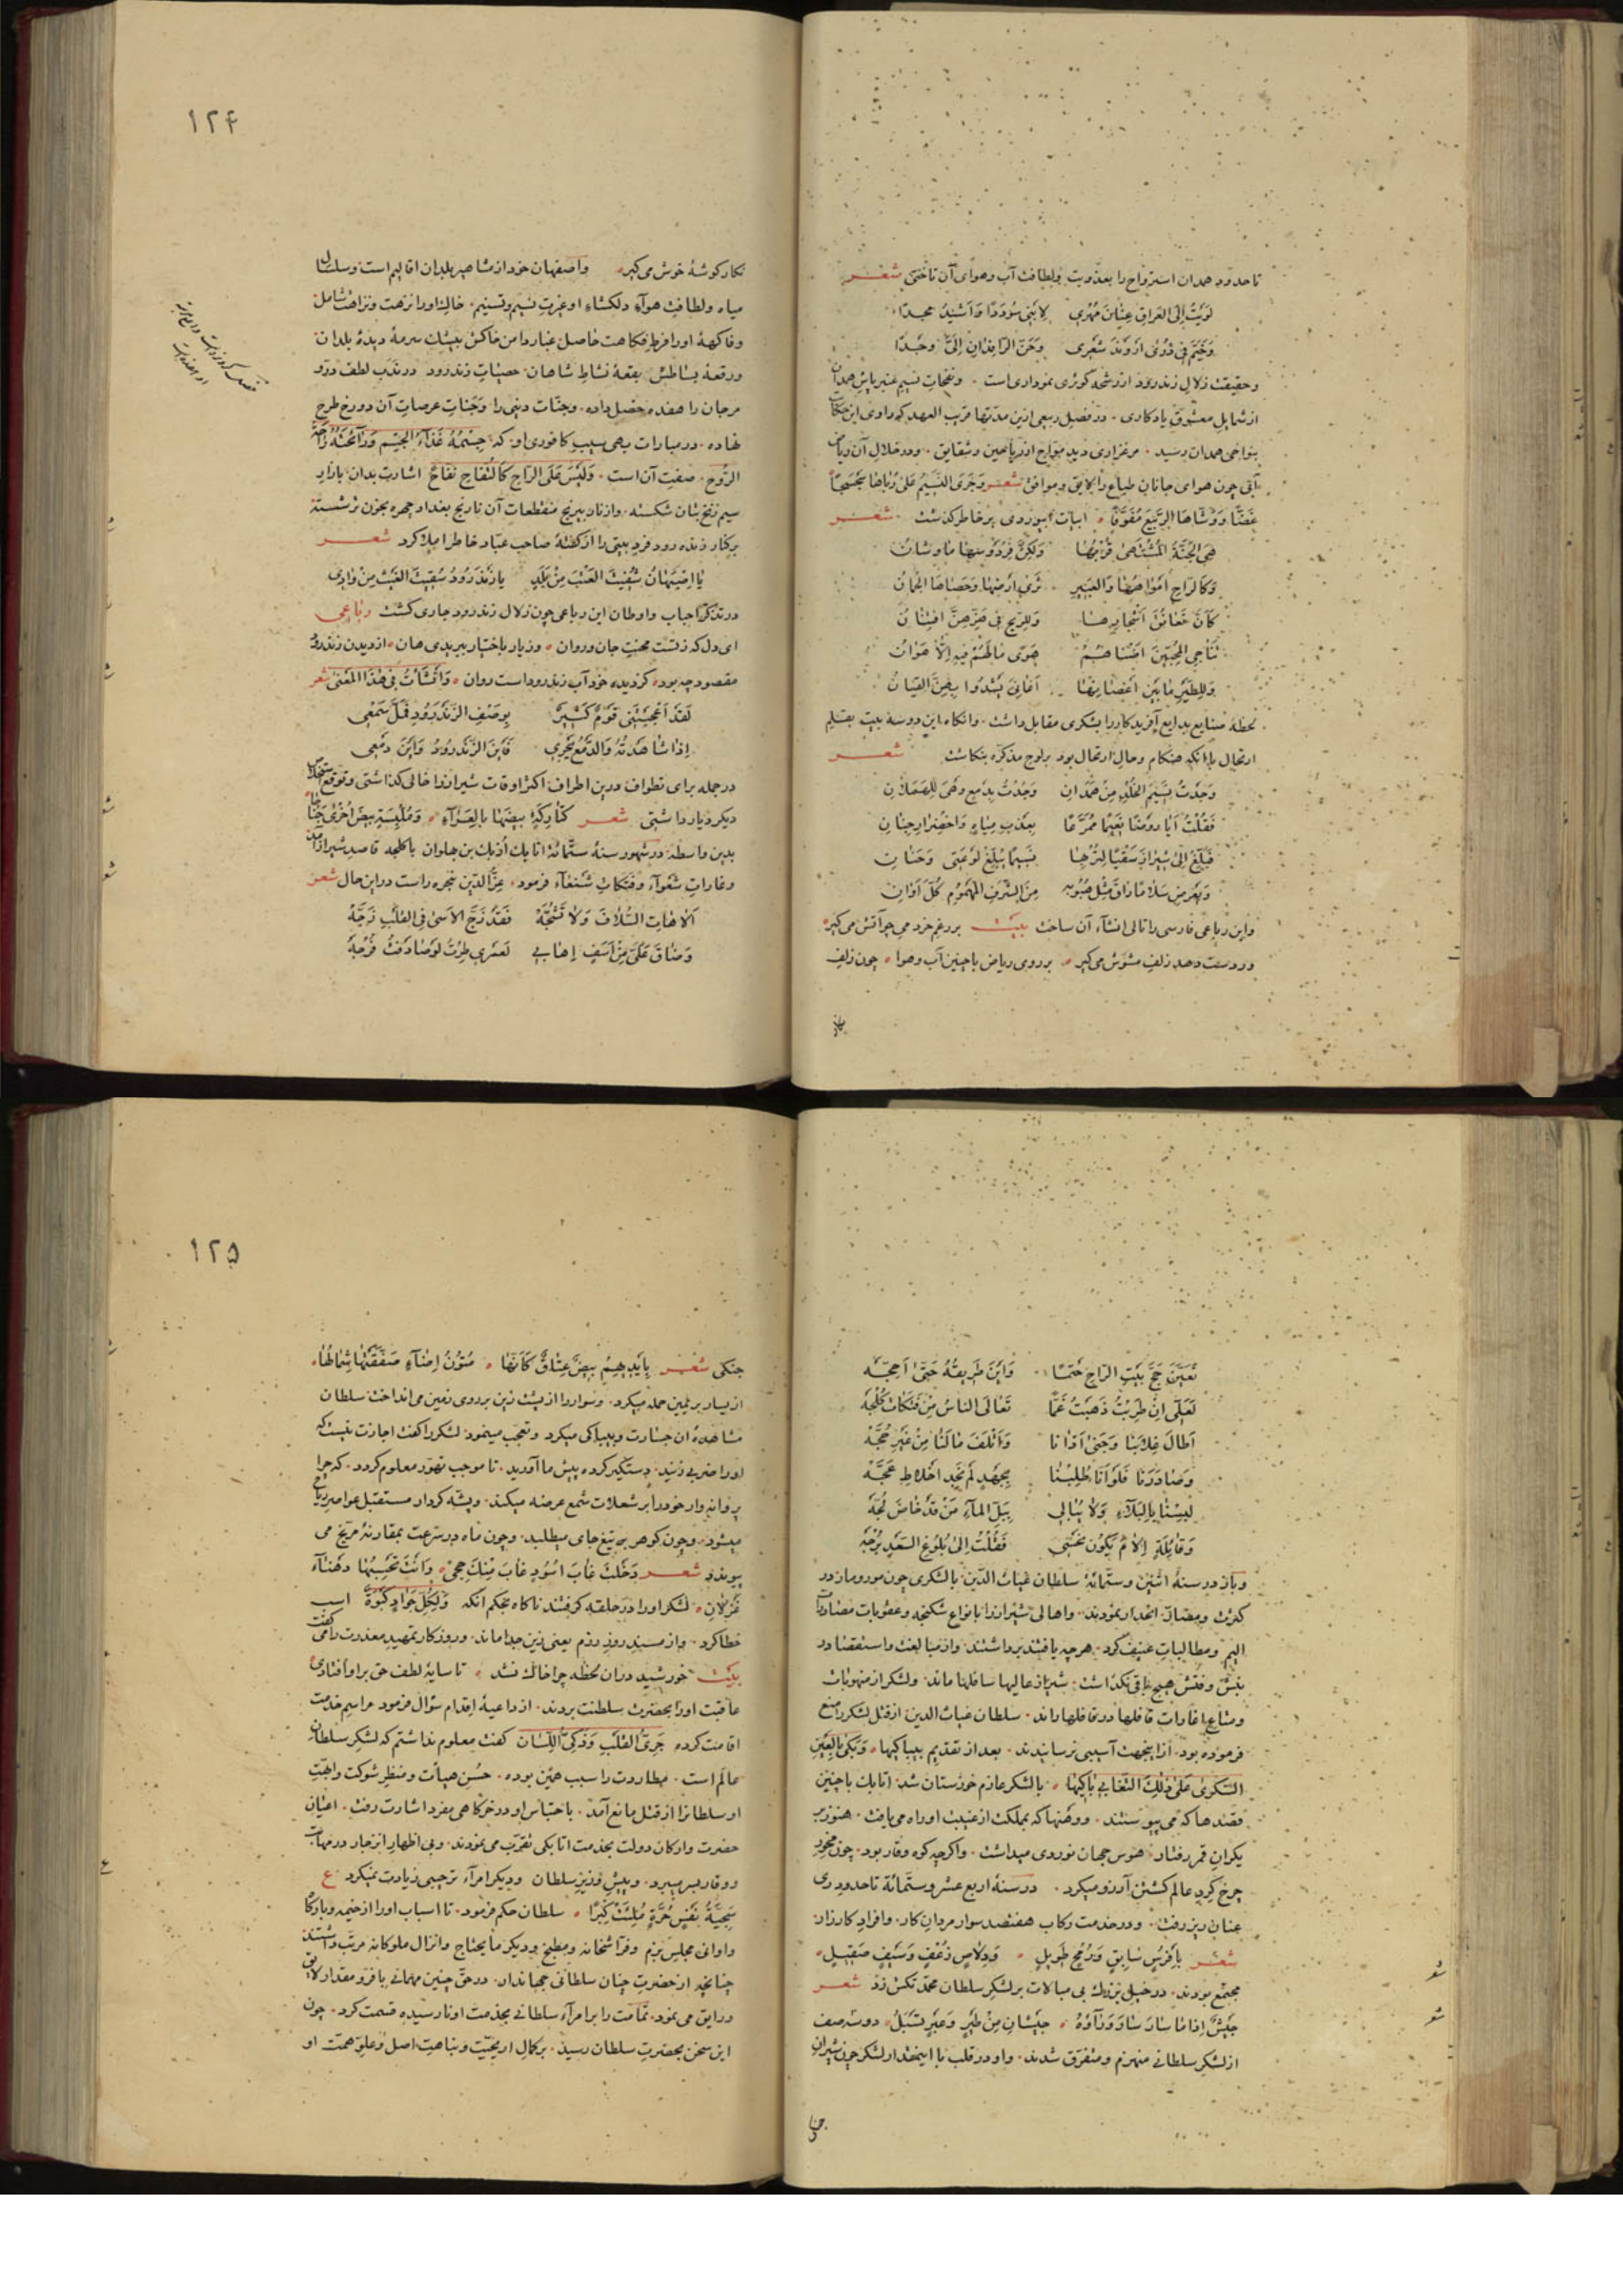 تا حدود همدان استرواح را بعذوبت ولطافت آب وهوای آن تاختی شعر
لویت الی العراق عنان مهری لابنی سؤددا واشید مجدا
وخیم فی ذری اروند شعری وحن الرافدان الی وجدا
وحقیقت زلال زندرود از رشحه کوثری نموداری است ونفحات نسیم عنبرپاش همدان
از شمایل معشوق یادکاری در فصل ربیعی ازین مدتها قریب العهد که راوی این حکایات
بنواحی همدان رسید مرغزاری دید مواج از ریاحین وشقایق ودر خلال آن ریاض
آبی چون هوای جانان طباع را لایق وموافق شعر وجری النسیم علی رباها
غضا ووشاها الربیع مفوفا ابیات ابیوردی بر خاطر گذشت شعر
هی الجنة المشتهی قربها ولکن فردوسها ماوشان
وکالراح امواهها والعبیر ثری ارضها وحصاها الجمان
کأن تعانق اشجارها وللریح فی هزهن افتنان
تناجی المحبین اضناهم هوی مالهم فیه الا هوان
وللطیر ما بین اغصانها اغانی یشدوا بهن القیان
لحظه صنایع بدایع آفریدکار را بشکری مقابل داشت وانکاه این دو سه بیت بقلم
ارتجال با آنکه هنکام وحال ارتحال بود بر لوح مذکره بنکاشت شعر
وجدت نسیم الخلد من همدان وجدت بدمع وهی للهملان
فقلت ایا روضا نعیما ممرعا بعذب میاه واخضرار جنان
فبلغ الی شیراز سقیا لتربها نسیما یبلغ لوعتی وحنان
وتعرض سلاما ذاق مثل صبوبه من الشرف المهموم کل اوان
واین رباعی فارسی را تالی انشآء آن ساخت بیت بر رغم خرد می چو آتش می گیر
ور دست دهد زلف مشوش می گیر بر روی ریاض با چنین آب وهوا چون زلف
۱۲۴
نکار کوشهٔ خوش می گیر واصفهان خود از مشاهیر بلدان اقالیم است وسلسال
میاه ولطافت هوآء دلکشاء او غیرت نسیم وتسنیم خاک او را نزهت ونزاهت شامل
وفاکههٔ او را فرط فکاهت حاصل غبار دامن خاکش بیشک سرمهٔ دیدهٔ بلدان
ورقعهٔ بساطش بقعهٔ نشاط شاهان حصبات زندرود در ندب لطف درّ و
مرجان را هفده خصل داده وجنّات دنیی را وجنات عرصات آن دو رخ طرح
نهاده در مبارات بهی سیب کافوری او که جسمه غذآء الجسم ورآئحته راحة
الروح صفت آن است ولیس علی الراح کالتفاح نفاح اشارت بدان بازار
سیم زنخ بتان شکسته واز نار بیرنج منقطعات آن نارنج بغداد چهره بخون در شسته
بر کنار زنده رود فرد بیتی را از گفتهٔ صاحب عباد خاطر املا کرد شعر
یا اصبهان سقیت الغیث من بلد یا زندرود سقیت الغیث من وادی
در تذکر احباب واوطان این رباعی چون زلال زندرود جاری گشت رباعی
ای دل که ز تست محنت جان وروان وز یار باختیار ببریدی هان از دیدن زندرود
مقصود چه بود کز دیده خود آب زندرود است روان وانشأت فی هذا المعنی شعر
لقد اعجبتنی قوم کثیر بوصف الزندرود فمل سمعی
اذا شاهدته والدمع یجری فاین الزندرود واین دمعی
در جمله برای تطواف درین اطراف اکثر اوقات شیراز را خالی گذاشتی وتوقع استخلاص
دیگر دیار داشتی شعر کتارکة بیضها بالعرآء وملبسة بیض اخری جناحا
بدین واسطه در شهور سنهٔ ستمائة اتابک ازبک بن جهلوان با کلجه قاصد شیراز آمدند
وغارات شعوآء وفتکات شنعآء فرمود عز الدین شجره راست در این حال شعر
الا هات السلاف ولا تشجه فقد زج الاسی فی القلب زجه
وضاق علی من اسف اهابی لعمری طرت لو صادفت فرجه
تعین حج بیت الراح حتما واین طریقه حتی احجه
لعلی ان طربت ذهبت غما تعالی الناس من فتکات کلجه
اطال غلابنا وجنی اذانا واتلف مالنا من غیر حجه
وصادرنا فلو انا طلبنا بجهد لم نجد اخلاط عجه
لبسنا بالبلاء ولا یبالی ببل المآء من قد خاض لجه
وقائلة الام یکون عتبی فقلت الی بلوغ السعد برجه
وباز در سنهٔ اثنین وستمائة سلطان غیاث الدین با لشکری چون مور ومار در
کثرت ومضار اتحدار نمودند واهالی شیراز را بانواع شکنجه وعقوبات مصادرات
الیم ومطالبات عنیف کرد هرچه یافتند برداشتند واز مبالغت واستقصا در
نبش وفتش هیچ باقی نکذاشت شیراز عالیها سافلها ماند ولشکر از منهوبات
ومتاع اغارات قافلها در قافلها راند سلطان غیاث الدین از قتل لشکر را منع
فرموده بود ازاینجهت آسیبی نرسانیدند بعد از تقدیم بیباکیها وتبکی بالعین
السکری علی ذلک التغابی باکیها با لشکر عازم خوزستان شد اتابک با چنین
قصدها که می پیوستند ورخنها که بمملکت از غیبت او راه می یافت هنوز بر
یکران قمر رفتار هوس جهان نوردی میداشت واکرچه کوه وقار بود چون محور
چرخ کرد عالم کشتن آرزو میکرد در سنهٔ اربع عشر وستمائة تا حدود ری
عنان ریز رفت ودر خدمت رکاب هفتصد سوار مردان کار وافراد کارزار
شعر بافرس سابق ورمح طویل ودلاص زغف وسیف صقیل
مجتمع بودند در خیلی بزرک بی مبالات بر لشکر سلطان محمد تکش زد شعر
جیش اذا ما سار سار وراؤه جیشان من طیر وغیر تشبل دو سه صف
از لشکر سلطانی منهزم ومتفرق شدند واو در قلب با اینقدار لشکر چون شیران
جنکی
۱۲۵
جنکی شعر بایدیهم بیض عتاق کانها متون اضآء صفقتها شمالها
از یسار بر یمین حمله میکرد وسوار را از پشت زین بر روی زمین می انداخت سلطان
مشاهدهٔ آن جسارت وبیباکی میکرد وتعجب مینمود لشکر را گفت اجازت نیست که
او را ضربی زنید دستکیر کرده پیش ما آورید تا موجب تهور معلوم کردد که چرا
پروانه وار خود را بر شعلات شمع عرضه میکند وپشه کردار مستقبل عواصر ریاح
میشود وچون کوهر بر تیغ جای میطلبد وچون ماه در سرعت بمقارنهٔ مریخ می
پیوندد شعر دخلت غاب اسود غاب منک حجی وانت تحسبها دهنآء
غزلان لشکر او را در حلقه گرفتند ناکاه بحکم آنکه ولکل جواد کبوة اسب
خطا کرد واز مسند روز رزم یعنی زین جدا ماند وروزکار تمهید معذرت را می گفت
بیت خورشید در آن لحظه چرا خاک نشد تا سایهٔ لطف حق بر او افتادی
عاقبت او را بحضرت سلطنت بردند از داعیهٔ اقدام سؤال فرمود مراسم خدمت
اقامت کرده جری القلب وذکی اللسان گفت معلوم نداشتم که لشکر سلطان
عالم است مطاردت را سبب همین بوده حسن هیأت ومنظر شوکت وابهت
او سلطانرا از قتل مانع آمد باحتباس او در خرگاهی مفرد اشارت رفت اعیان
حضرت وارکان دولت بخدمت اتابکی تقرب می نمودند وبی اظهار انزجار در مهابت
ووقار بسر میبرد وپیش وزیر سلطان ودیکر امرآء ترحیبی زیادت نمیکرد ع
سجیة نفس حرة ملئت کبرا سلطان حکم فرمود تا اسباب او را از خیمه وبارکاه
واوانی مجلس بزم وفراشخانه ومطبخ ودیگر مایحتاج وانزال ملوکانه مرتب داشتند
چنانچه از حضرت چنان سلطانی جهاندار در حق چنین مهمانی با فرّ ومقدار لائق
ورایق می نمود تمامت را بر امرآء سلطانی بخدمت او نارسیده قسمت کرد چون
این سخن بحضرت سلطان رسید بر کمال اریحیت ونباهت اصل وعلو همت او